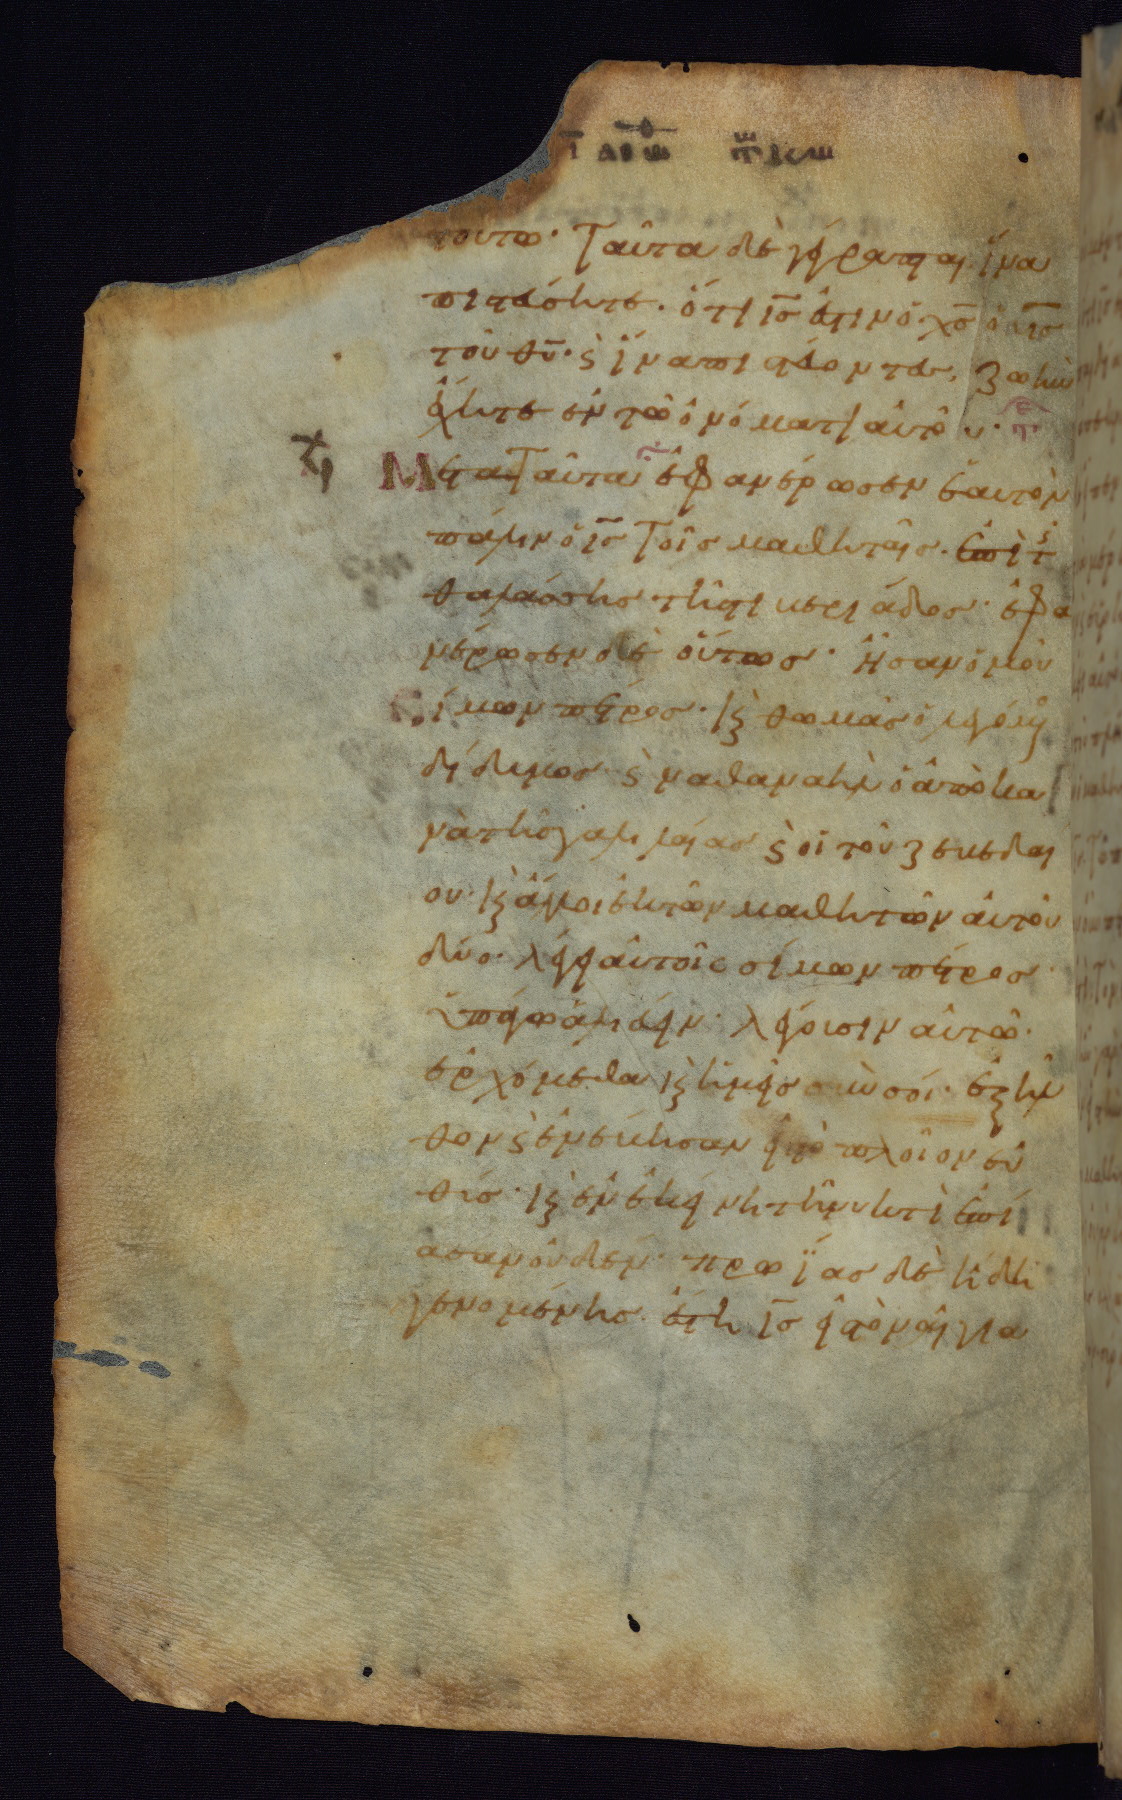 τούτω· Ταῦτα δὲ γέγραπται ἵνα
πιστεύσητε· ὅτι ις̅ ἐστιν ὁ χς̅ ὁ υις̅
τοῦ θυ̅· ϛ ἵνα πιστεύοντες, ζωὴν
ἔχητε ἐν τῶ ὀνόματι αὐτοῦ·
Μετα Ταῦτα ἐφανέρωσεν ἑαυτὸν
πάλιν ὁ ις̅ Τοῖς μαθηταῖς· ἐπὶ τ
θαλάσσης τῆς τιβεριάδος· ἐφα
νέρωσεν δὲ οὕτως· Ἦσαν ὁμοῦ
σίμων πέτρος· κ θωμᾶς ὁ λεγόμεν
δίδυμος· ϛ ναθαναὴλ ὁ ἀπὸ κα
νὰ τῆς γαλιλαίας ϛ οἱ τοῦ ζεβεδαί
ου· κ ἄλλοι ἐκ τῶν μαθητῶν αὐτοῦ
δύο· λέγει αὐτοῖς σίμων πέτρος·
ὑπάγω ἁλιεύειν· λέγουσιν αὐτῶ·
ἐρχόμεθα κ ἡμεῖς σὺν σοί· ἐξῆλ
θον ϛ ἐνέβησαν εἰς τὸ πλοῖον εὐ
θύς· κ ἐν ἐκείνη τῆ νυκτὶ ἐπί
ασαν οὐδέν· πρωΐας δὲ ἤδη
γενομένης· ἔστη ις̅ εἰς τὸν αἰγια